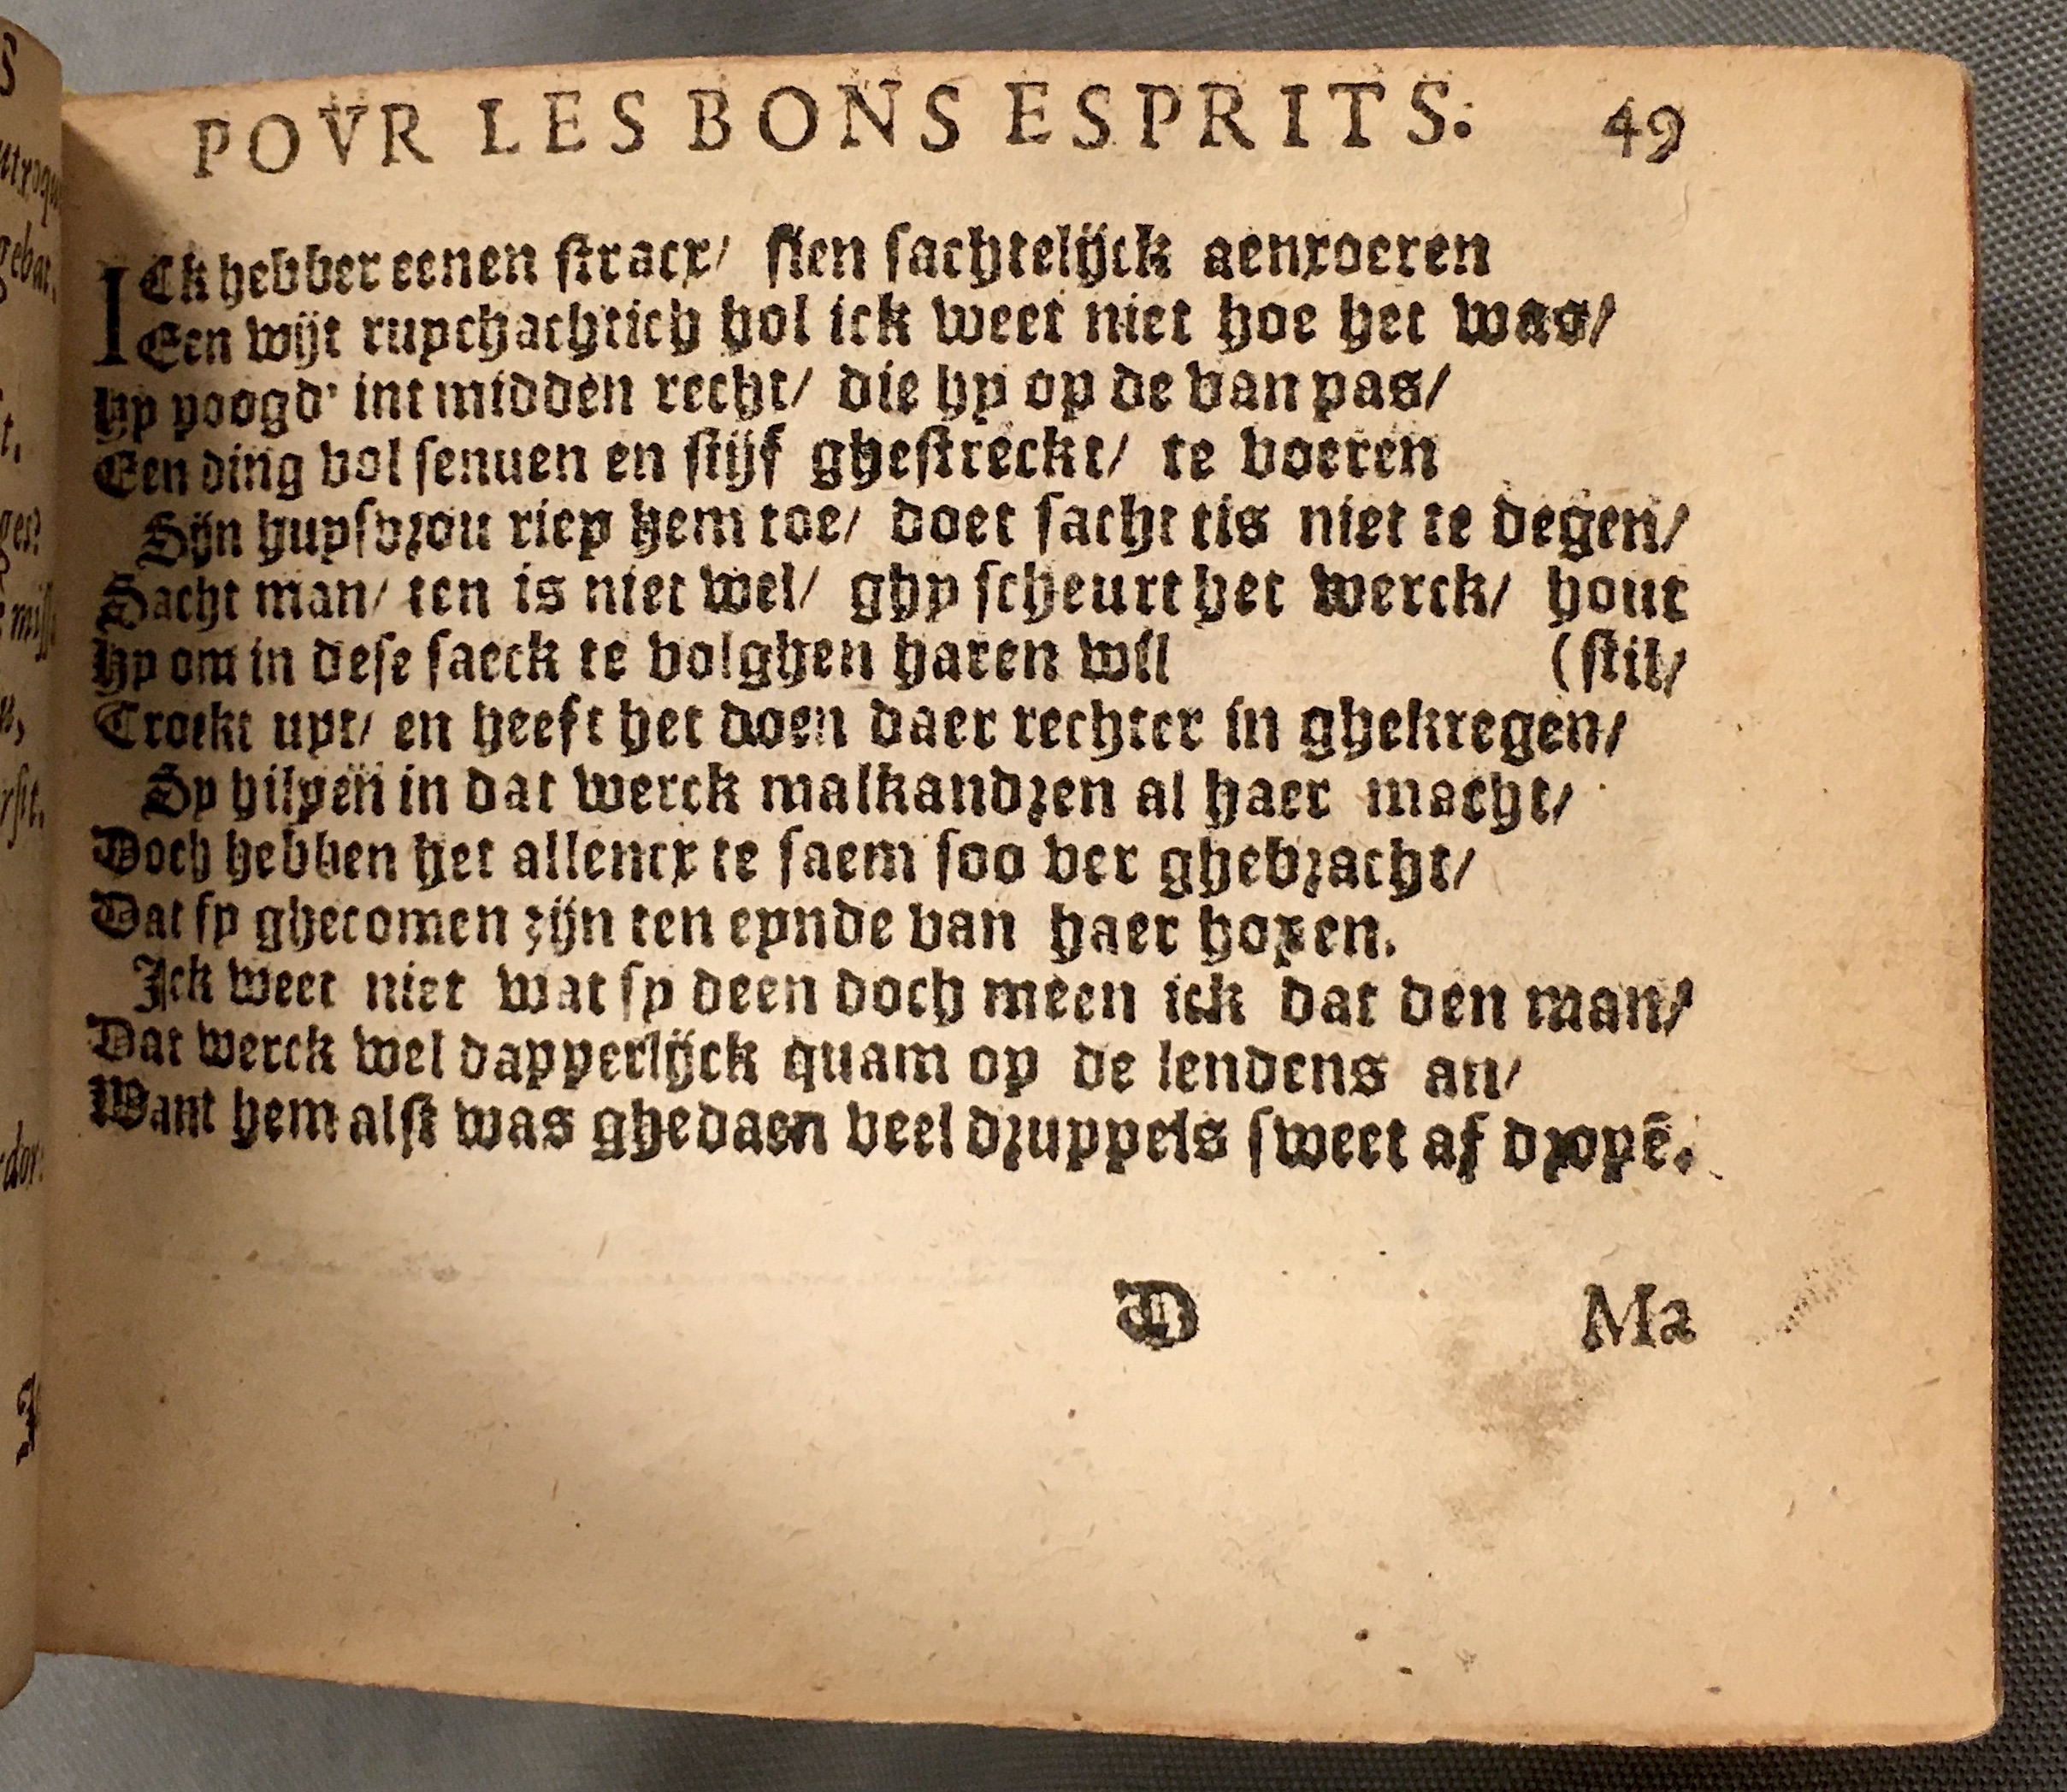 POVR LES BONS ESPRITS. 49
ICk hebber eenen stracx/ sien sachtelijck aenroeren
Een wijt ruychachtich hol ick weet niet hoe het was/
Hy poogd' int midden recht/ die hy op de van pas/
Een ding vol senuen en stijf ghestreckt/ te voeren
Sijn huysvrou riep hem toe/ doet sacht tis niet te degen/
Sacht man/ ten is niet wel/ ghy scheurt het werck/ hout
Hy om in dese saeck te volghen haren wil (stil/
Trockt uyt/ en heeft het doen daer rechter in ghekregen/
Sy hilpen in dat werck malkandren al haer macht/
Doch hebben het allencx te saem soo ver ghebracht/
Dat sy ghecomen zijn ten eynde van haer hopen.
Ick weet niet wat sy deen doch meen ick dat den man/
Dat werck wel dapperlijck quam op de lendens an/
Want hem alst was ghedaen veel druppels sweet af dropē.
D Ma